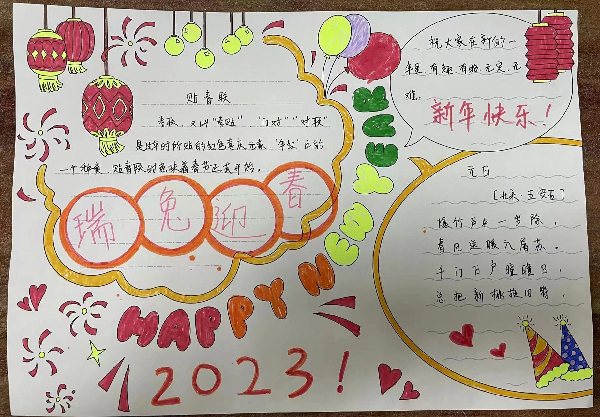 贴春联
春联，又叫"春贴"、"门对""对联"
是过年时所贴的红色喜庆元素"年红"中的
一个种类，贴春联时意味着春节正式开始。
瑞兔迎春
祝大家在新的
新年快乐！
元日
[北宋 王安石]
爆竹声中一岁除，
春风送暖入屠苏。
千门万户曈曈日，
总把新桃换旧符。
HAPPY NEW YEAR
2023!